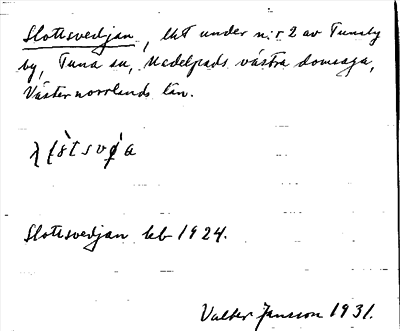 Slottsvedjan, lht under nr 2 av Tunaby
by, Tuna sn, Medelpads västra domsaga,
Västernorrlands län.
Slottsvedjan kb 1924.
Valter Jansson 1931.